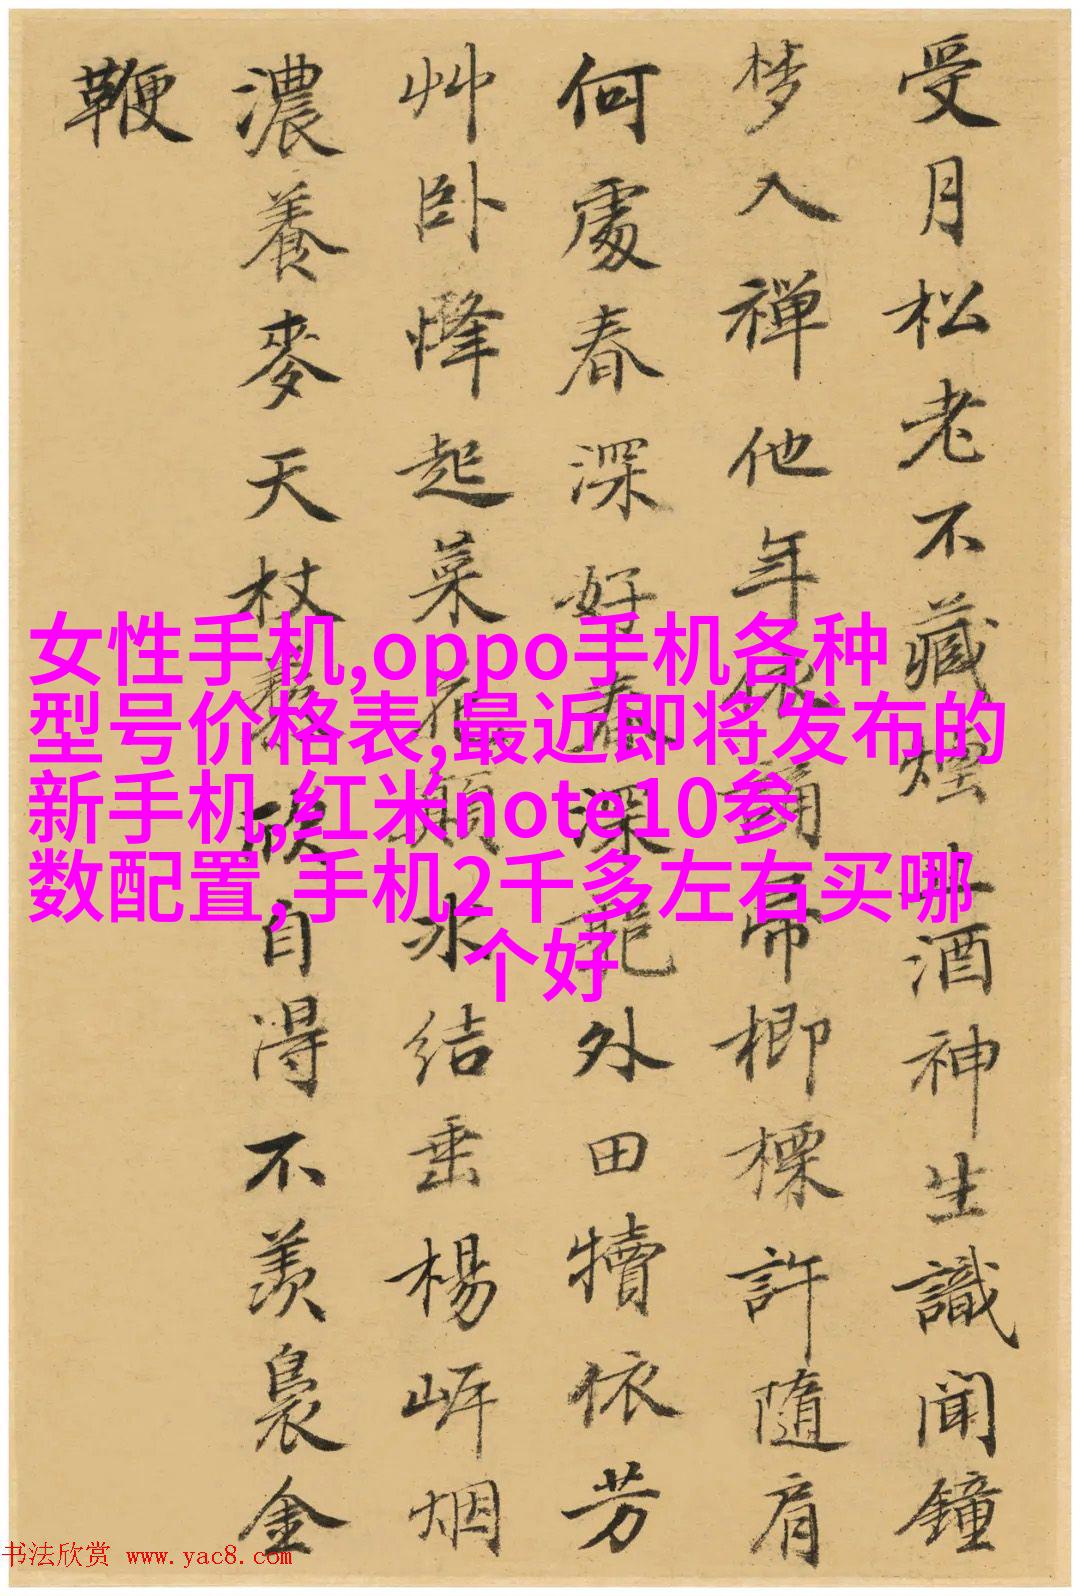 受月松老不藏煙酒神生識聞鐘
梦入禅他年誦帚楖許隨肩
何處春深好春深郭外田犢依芳
艸卧起菜花水結垂楊岍烟
濃養麥天杖藜欣自得不羨裊金
鞭
女性手机,oppo手机各种
型号价格表,最近即将发布的
新手机,红米note10参
数配置,手机2千多左右买哪
个好
书法欣赏 www.yac8.com